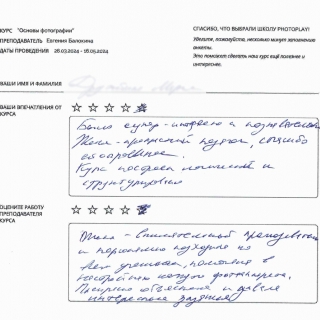 КУРС "Основы фотографии"
ПРЕПОДАВАТЕЛЬ Евгения Балохина
ДАТЫ ПРОВЕДЕНИЯ - 28.03.2024 - 16.05.2024
СПАСИБО, ЧТО ВЫБРАЛИ ШКОЛУ PHOTOPLAY!
Уделите, пожалуйста, несколько минут заполнению
анкеты.
Это поможет сделать наш курс ещё полезнее и
интереснее.
ВАШИ ИМЯ И ФАМИЛИЯ
ВАШИ ВПЕЧАТЛЕНИЯ ОТ
КУРСА
Было супер-интересно и познавательно
Женя - прекрасный педагог, спасибо
ей огромное.
Курс построен логично и
структурирован
ОЦЕНИТЕ РАБОТУ
ПРЕПОДАВАТЕЛЯ
КУРСА
внимательный преподаватель
и персонально подходила ко
всем ученикам, помогая в
каждого
объясняла и давала
интересные задания